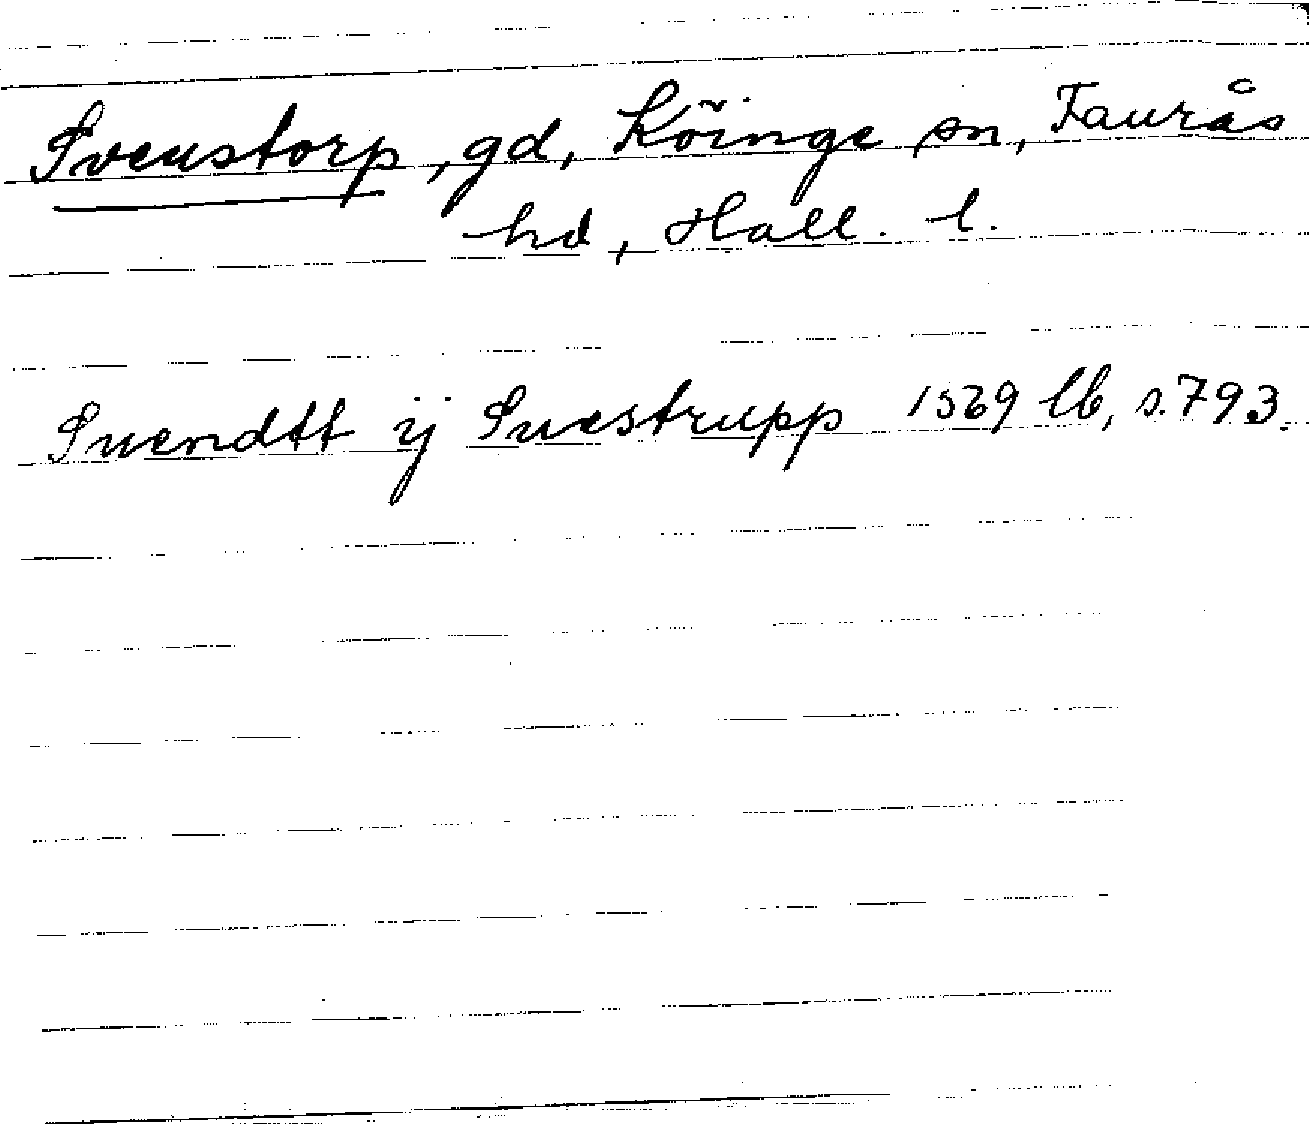 Svenstorp, gd, Köinge sn, Faurås
hd, Hall. l.
Suendtt ÿ Suestrupp 1569 lb, s.793.